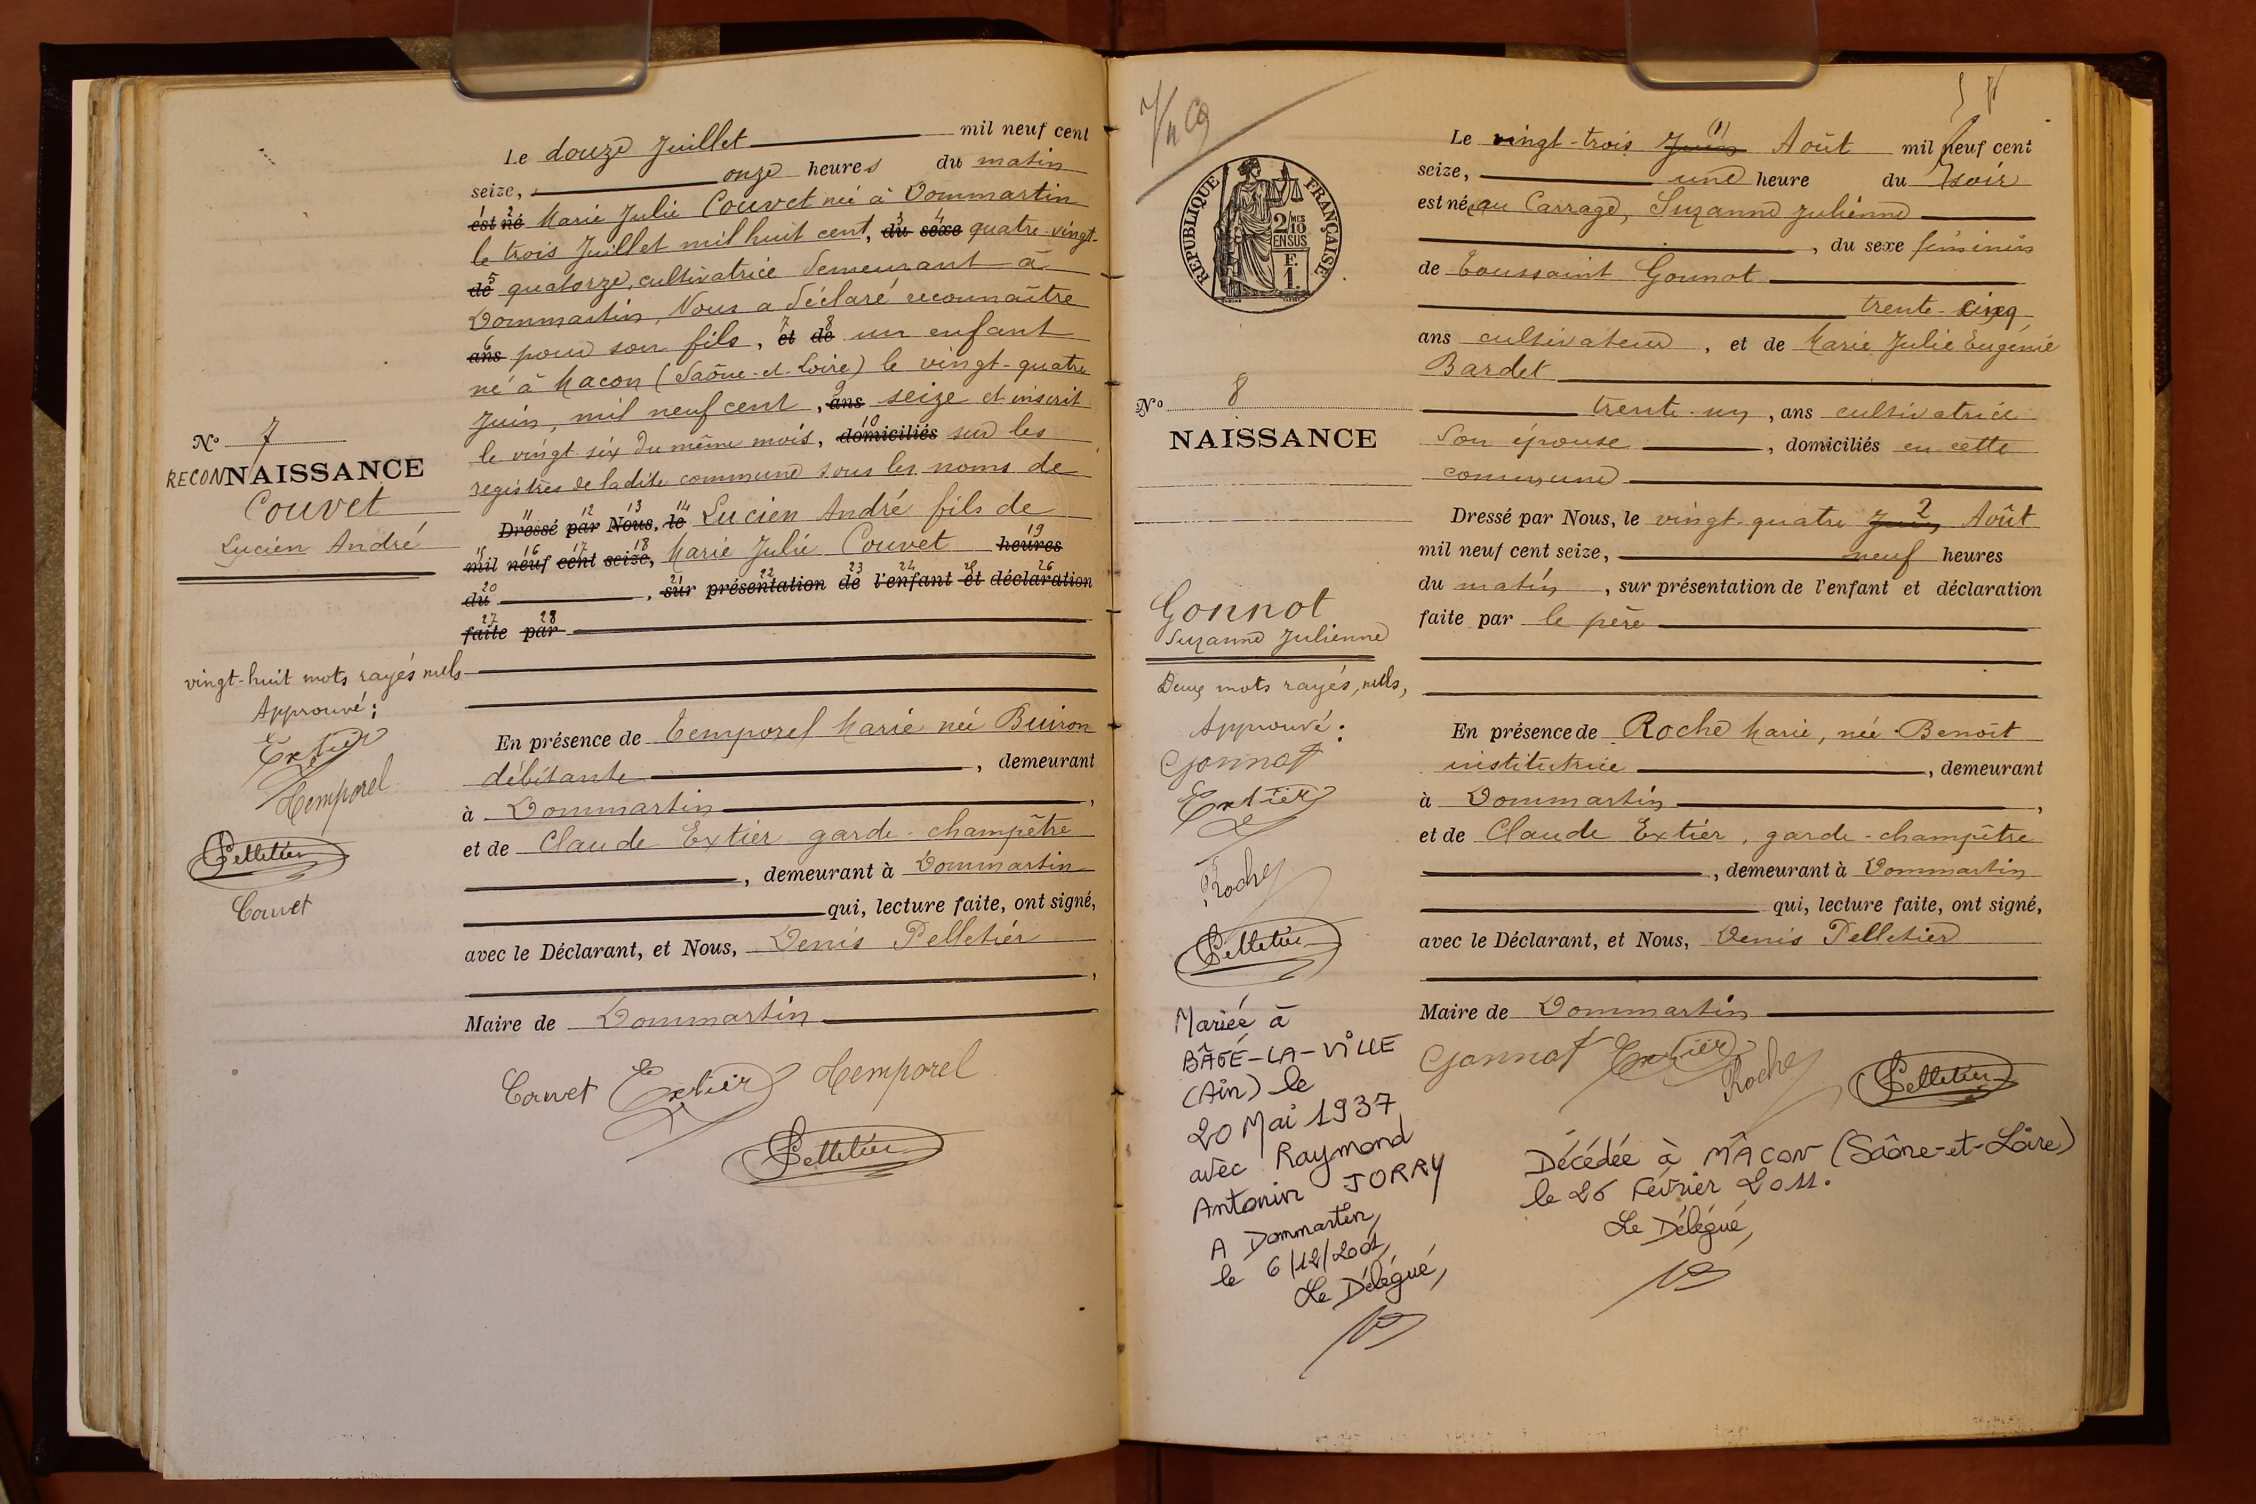 Le douze Juillet mil neuf cent
seize, onze heures du matin
1 2
est né Marie Julie Couvet née à Dommartin
3 4
le trois Juillet mil huit cent, du sexe quatre-vingt-
5
de quatorze, cultivatrice demeurant à
Dommartin, Nous a déclaré reconnaître
6 7 8
ans pour son fils, et de un enfant
né à Macon (Saône-et-Loire) le vingt-quatre
9
Juin, mil neuf cent, ans seize et inscrit
10
le vingt six du même mois, domiciliés sur les
registres de ladite commune sous les noms de
11 12 13 14
Dressé par Nous, le Lucien André fils de
15 16 17 18 19
mil neuf cent seize, Marie Julie Couvet heures
20 21 22 23 24 25 26
du , sur présentation de l'enfant et déclaration
27 28
faite par
En présence de Temporel Marie née Buiron
débitante , demeurant
à Dommartin ,
et de Claude Extier garde-champêtre
, demeurant à Dommartin
qui, lecture faite, ont signé,
avec le Déclarant, et Nous, Denis Pelletier
,
Maire de Dommartin
Couvet Extier Temporel
Pelletier
No 7
RECONNAISSANCE
Couvet
Lucien André
vingt-huit mots rayés nuls
Approuvé :
Extier
Temporel
Pelletier
Couvet
RÉPUBLIQUE FRANÇAISE
2/10 MES
EN SUS
F.
1.
No 8
NAISSANCE
Gonnot
Suzanne Julienne
Deux mots rayés, nuls,
Approuvé :
Gonnot
Extier
Roche
Pelletier
Mariée à
BÂGÉ-LA-VILLE
(Ain) le
20 Mai 1937
avec Raymond
Antonin JORRY
A Dommartin,
le 6/12/2001,
Le Délégué,
Le vingt-trois Juin (1) Août mil neuf cent
seize, une heure du soir
est née au Carrage, Suzanne Julienne
, du sexe féminin
de Toussaint Gonnot
trente-cinq
ans cultivateur , et de Marie Julie Eugénie
Bardet
trente-un , ans cultivatrice
Son épouse , domiciliés en cette
commune
2
Dressé par Nous, le vingt-quatre Juin Août
mil neuf cent seize, neuf heures
du matin , sur présentation de l'enfant et déclaration
faite par le père
En présence de Roche Marie, née Benoît
institutrice , demeurant
à Dommartin ,
et de Claude Extier, garde-champêtre
, demeurant à Dommartin
qui, lecture faite, ont signé,
avec le Déclarant, et Nous, Denis Pelletier
Maire de Dommartin
Gonnot Extier Roche Pelletier
Décédée à MÂCON (Saône-et-Loire)
le 26 Février 2011.
Le Délégué,